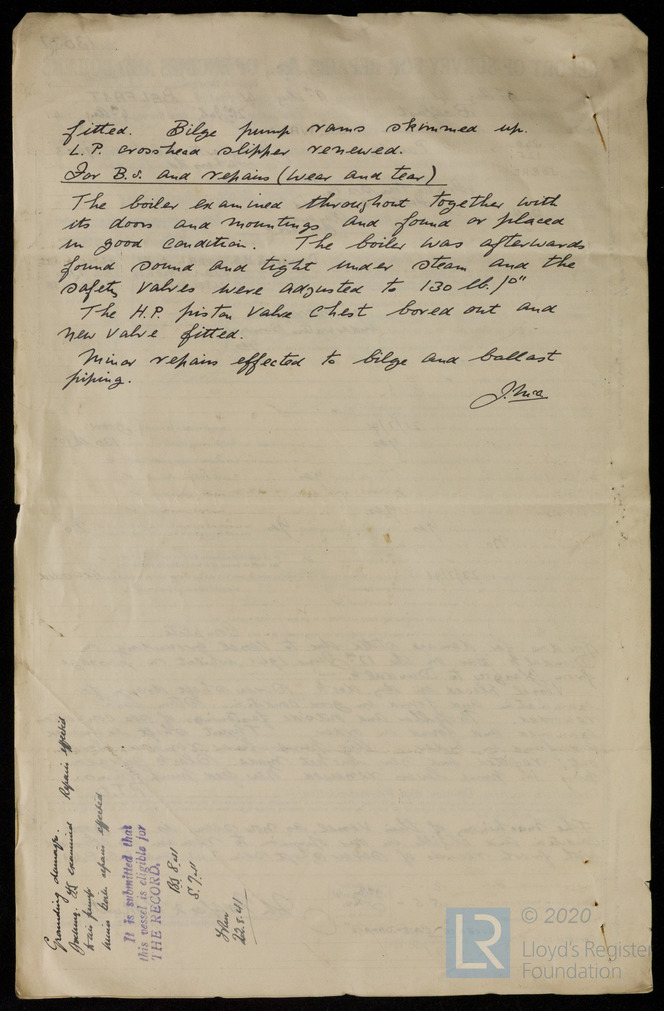 fitted. Bilge pump rams skimmed up.
L.P. crosshead slipper renewed.
For B.S. and repairs (wear and tear)
The boiler examined throughout together with
its doors and mountings and found or placed
in good condition. The boiler was afterwards
found sound and tight under steam and the
safety valves were adjusted to 130 lb./□"
The H.P. piston valve chest bored out and
new valve fitted.
Minor repairs effected to bilge and ballast
piping.
Grounding damage.
examined Repairs effected
air pump
minor repairs effected
It is submitted that
this vessel is eligible for
THE RECORD.
BS 8.41
S. 7.41
22.8.41
LR
© 2020
Lloyd's Register
Foundation